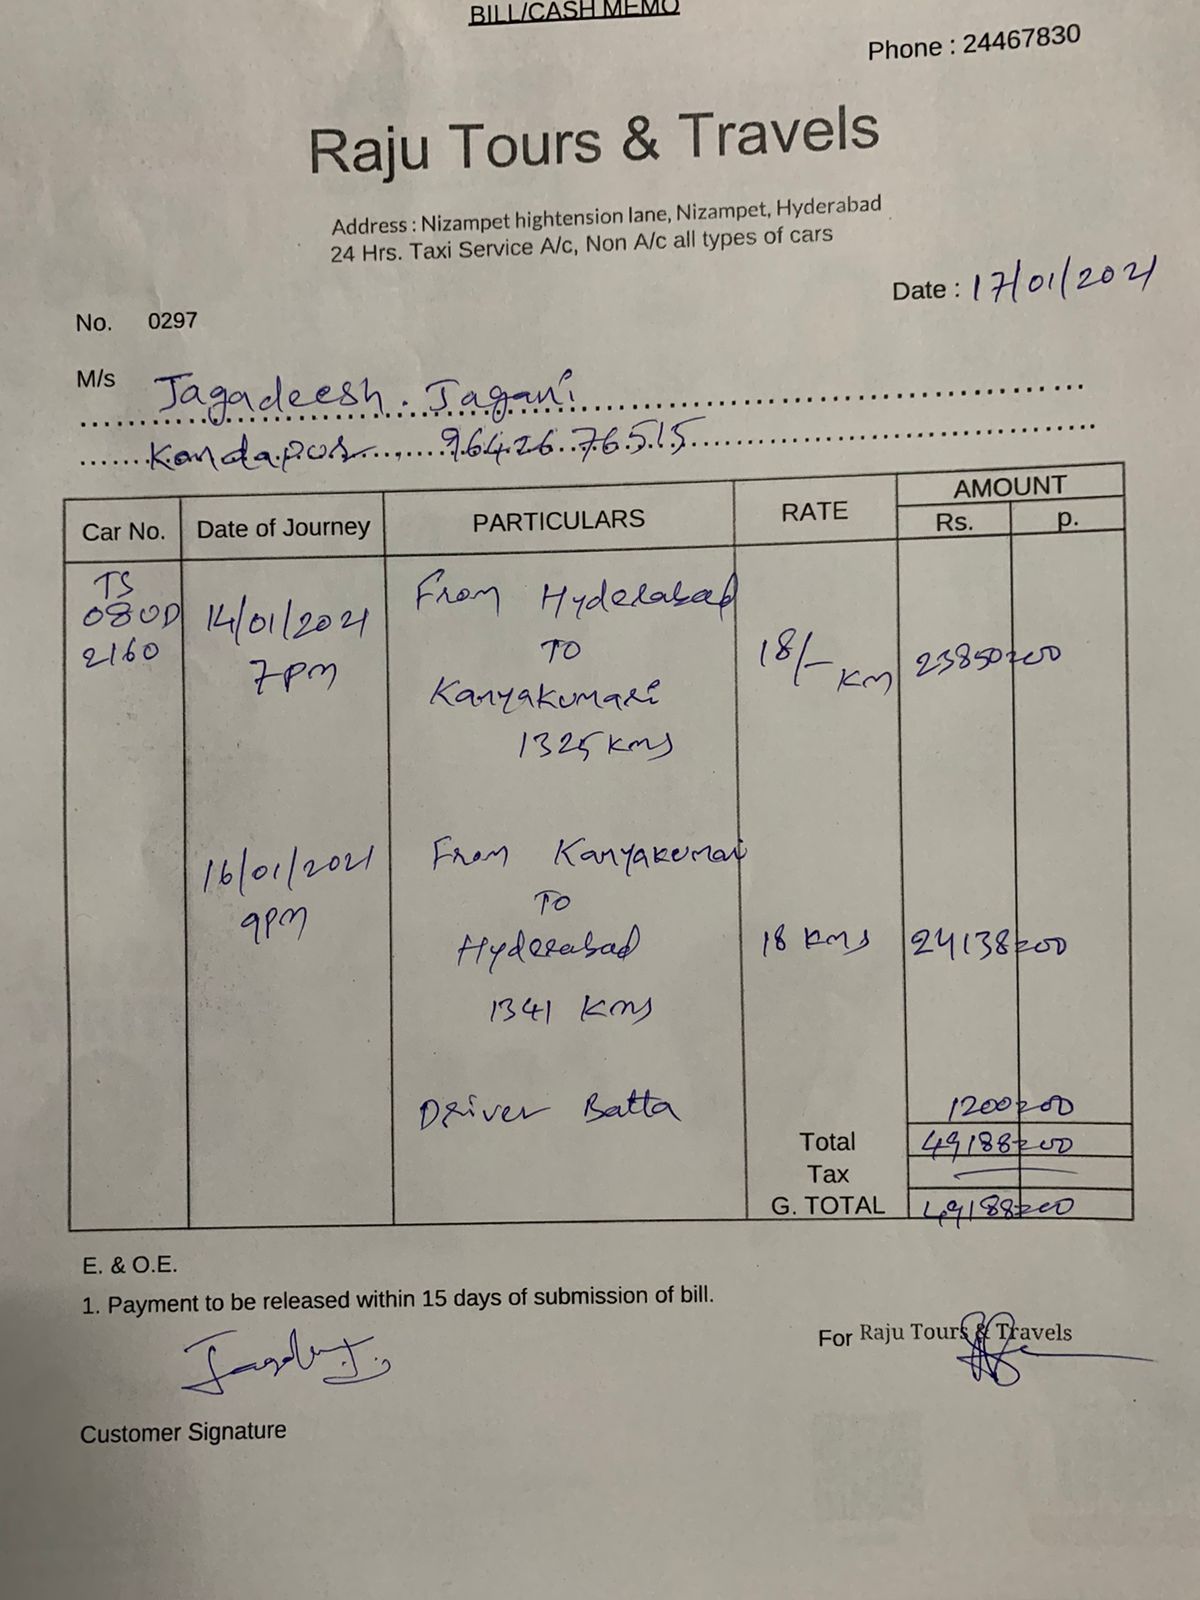 BILL/CASH MEMO
Phone : 24467830
Raju Tours & Travels
Address : Nizampet hightension lane, Nizampet, Hyderabad
24 Hrs. Taxi Service A/c, Non A/c all types of cars
Date : 17/01/2021
No. 0297
M/s Jagadeesh. Jagani
Kondapur, 96426 76515
Car No. Date of Journey PARTICULARS RATE AMOUNT
Rs. p.
TS 08UD 2160
14/01/2021 7pm
From Hyderabad
TO
Kanyakumari
1325 kms
18/- KM
23850=00
16/01/2021 9pm
From Kanyakumari
TO
Hyderabad
1341 Kms
18 Kms
24138=00
Driver Batta 1200=00
Total 49188=00
Tax —
G. TOTAL 49188=00
E. & O.E.
1. Payment to be released within 15 days of submission of bill.
For Raju Tours & Travels
Customer Signature